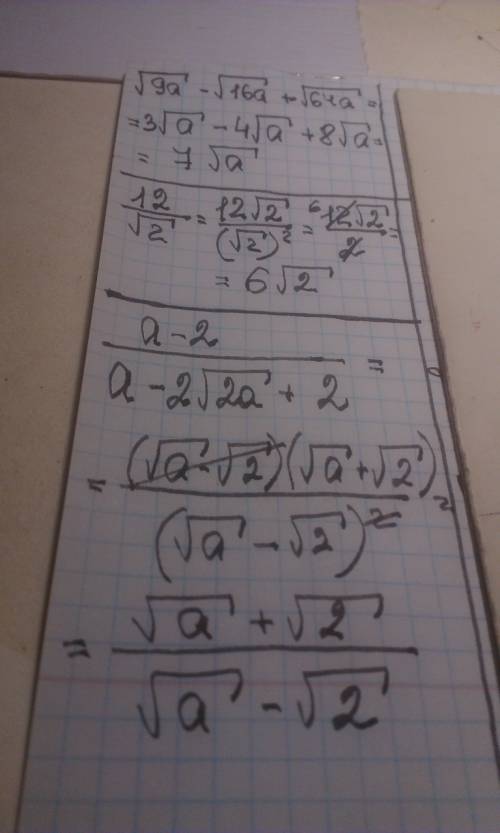 √9a - √16a + √64a =
= 3√a - 4√a + 8√a =
= 7 √a
12/√2 = 12√2/(√2)² = ⁶12√2/2 =
= 6√2
a - 2
a - 2√2a + 2 =
= (√a - √2)(√a + √2) =
(√a - √2)²
= √a + √2
√a - √2